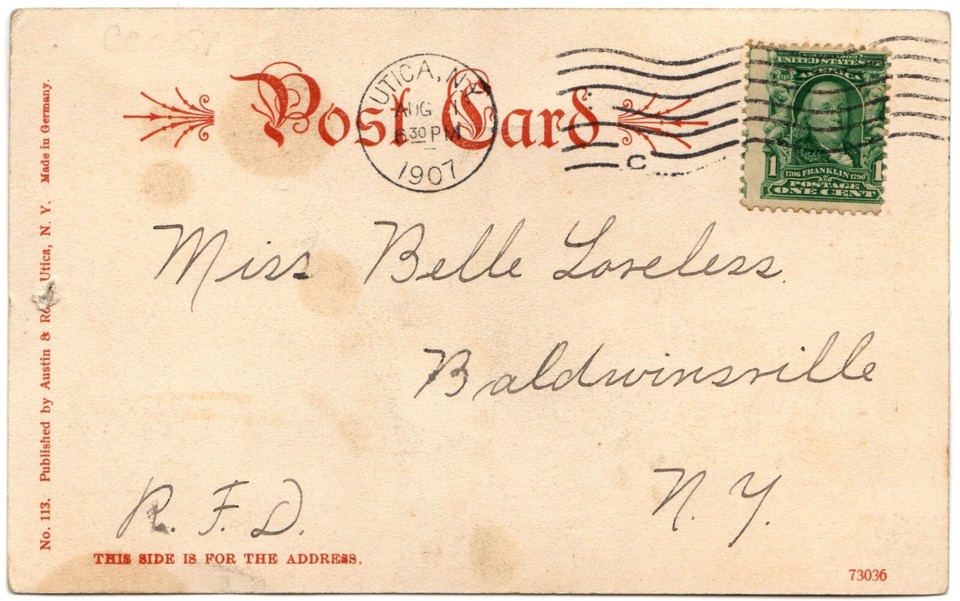 Post Card
UTICA, N.Y.
AUG
6 30 PM
1907
C
UNITED STATES OF
AMERICA
1 1
1706 FRANKLIN 1790
POSTAGE
ONE CENT
Miss Belle Loveless.
Baldwinsville
N. Y.
R. F. D.
THIS SIDE IS FOR THE ADDRESS.
73036
No. 113. Published by Austin & Utica, N. Y. Made in Germany.